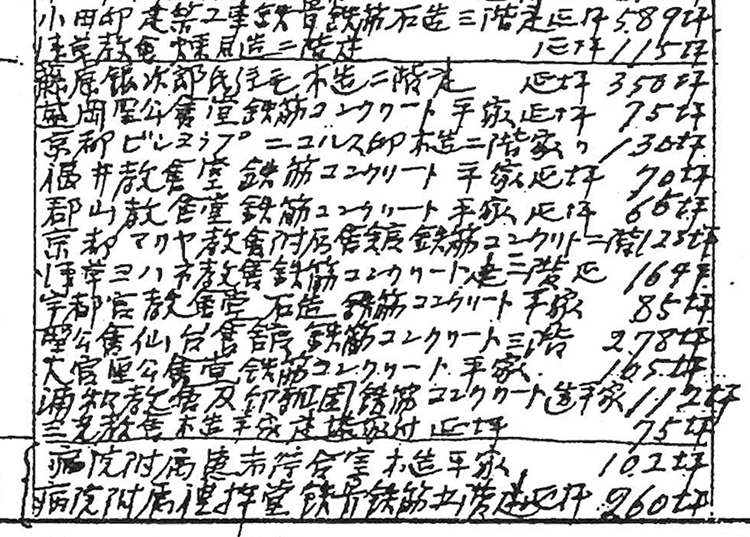 小田邸建築工事鉄骨鉄筋石造三階建延坪 589坪
浅草教會煉瓦造二階建 延坪 115坪
藤原銀次郎氏住宅木造二階建 延坪 350坪
岡聖公會堂鉄筋コンクリート平家延坪 75坪
京都ビショップニコルス邸木造二階家〃 130坪
福井教會堂鉄筋コンクリート平家延坪 70坪
郡山教會堂鉄筋コンクリート平家延坪 65坪
京都マリヤ教會附属會館鉄筋コンクリト二階 128坪
浅草ヨハネ教會鉄筋コンクリート建三階延 164坪
宇都宮教會堂石造鉄筋コンクリート平家 85坪
聖公會仙台會館鉄筋コンクリート三階 278坪
大宮聖公會堂鉄筋コンクリート平家 105坪
浦和教會及幼稚園鉄筋コンクリート造平家 112坪
三光教會木造平家建 延坪 75坪
病院附属恵 木造平家 102坪
病院附属禮拝堂鉄骨鉄筋 階建延坪 260坪